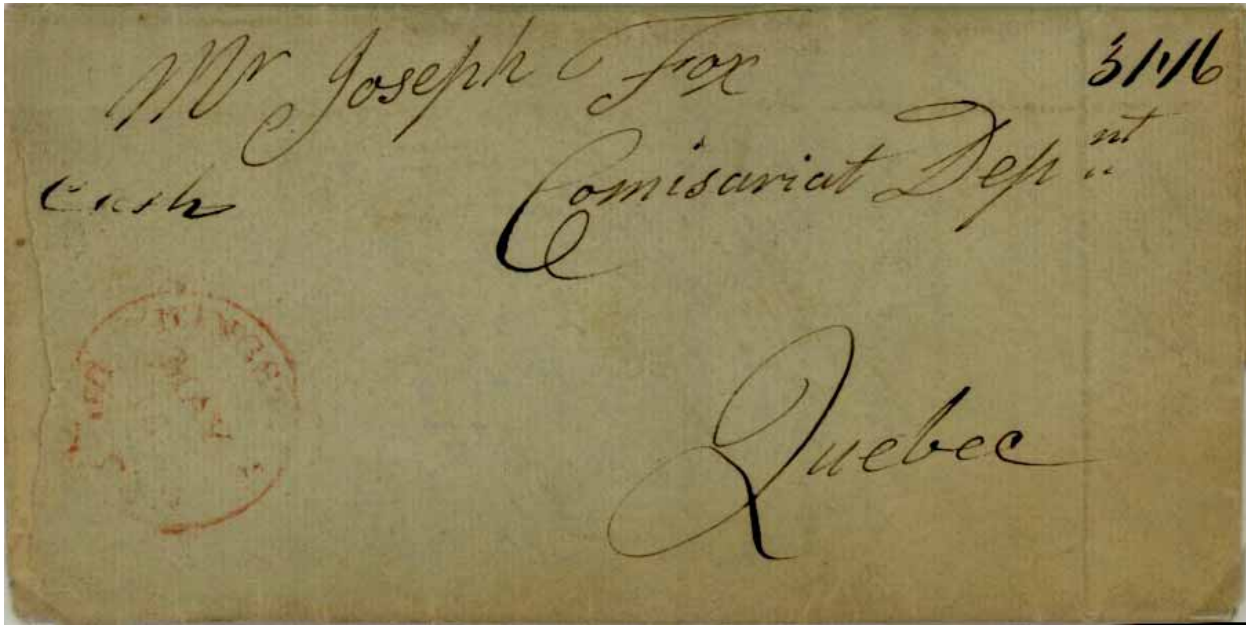 Mr Joseph Fox
3/1/6
Comisariat Depnt
Cash
Quebec